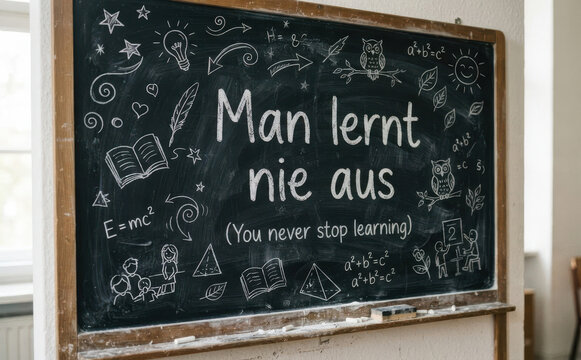 H =
a²+b²=c²
Man lernt
nie aus
(You never stop learning)
a²+b²
= c
E=mc²
2
a²+b²=c²
a²+b²=c²
a²+b²=c²